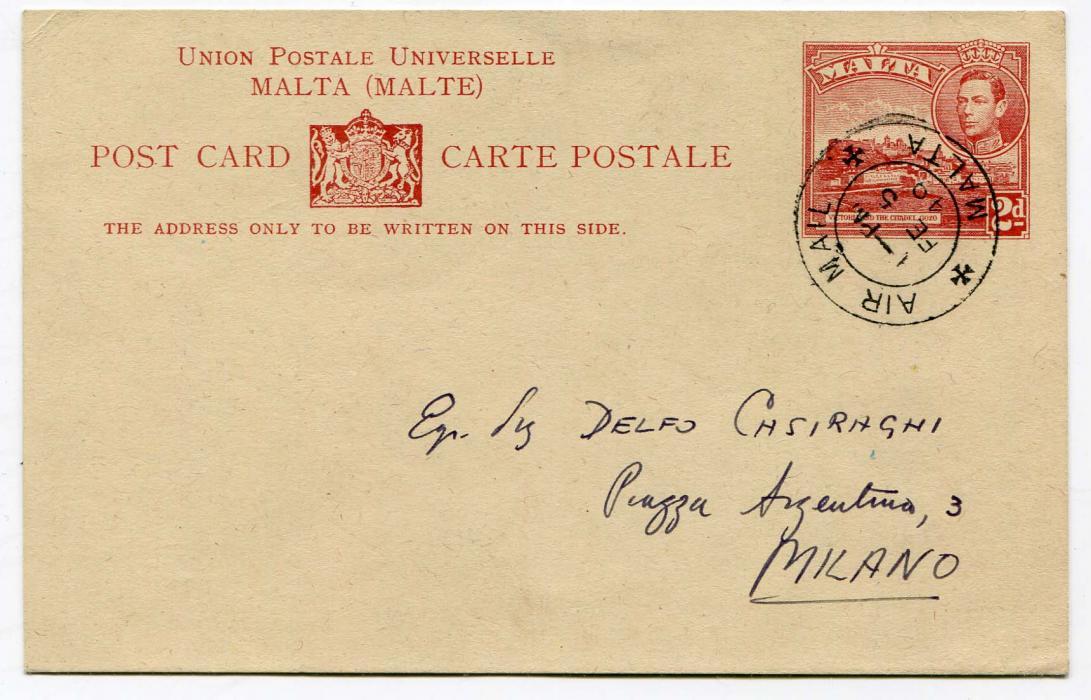 UNION POSTALE UNIVERSELLE
MALTA (MALTE)
POST CARD CARTE POSTALE
THE ADDRESS ONLY TO BE WRITTEN ON THIS SIDE.
MALTA
VICTORIA AND THE CITADEL, GOZO
2d
AIR MAIL MALTA
1 PM
FE 5
40
Egr. Sig DELFO CASIRAGHI
Piazza Argentina, 3
MILANO